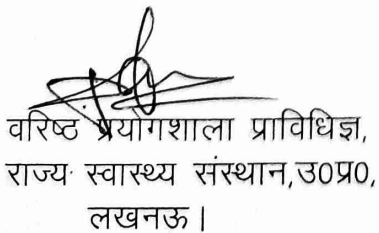 वरिष्ठ प्रयोगशाला प्राविधिज्ञ,
राज्य स्वास्थ्य संस्थान,उ0प्र0,
लखनऊ।